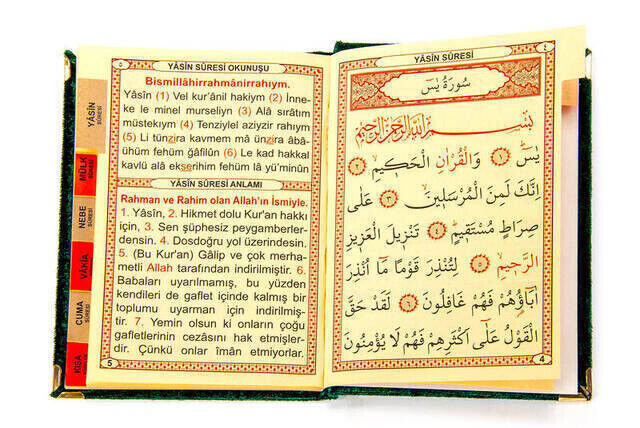 YÂSİN SÛRESİ
٤
سُورَةُ يٰسٓ
بِسْمِ اللّٰهِ الرَّحْمٰنِ الرَّحٖيمِ
يٰسٓ ﴿١﴾ وَالْقُرْاٰنِ الْحَكٖيمِ ﴿٢﴾
اِنَّكَ لَمِنَ الْمُرْسَلٖينَ ﴿٣﴾ عَلٰى
صِرَاطٍ مُسْتَقٖيمٍ ﴿٤﴾ تَنْزٖيلَ الْعَزٖيزِ
الرَّحٖيمِ ﴿٥﴾ لِتُنْذِرَ قَوْمًا مَٓا اُنْذِرَ
اٰبَٓاؤُ۬هُمْ فَهُمْ غَافِلُونَ ﴿٦﴾ لَقَدْ حَقَّ
الْقَوْلُ عَلٰٓى اَكْثَرِهِمْ فَهُمْ لَا يُؤْمِنُونَ
4
٥
YÂSİN SÛRESİ OKUNUŞU
Bismillâhirrahmânirrahıym.
Yâsîn (1) Vel kur'ânil hakiym (2) İnne-
ke le minel murseliyn (3) Alâ sırâtım
müstekıym (4) Tenziylel aziyzir rahıym
(5) Li tünzira kavmem mâ ünzira âbâ-
ühüm fehüm ğâfilûn (6) Le kad hakkal
kavlü alâ ekserihim fehüm lâ yü'minûn
YÂSİN SÛRESİ ANLAMI
Rahman ve Rahim olan Allah'ın İsmiyle.
1. Yâsîn, 2. Hikmet dolu Kur'an hakkı
için, 3. Sen şüphesiz peygamberler-
densin. 4. Dosdoğru yol üzerindesin.
5. (Bu Kur'an) Gâlip ve çok merha-
metli Allah tarafından indirilmiştir. 6.
Babaları uyarılmamış, bu yüzden
kendileri de gaflet içinde kalmış bir
toplumu uyarman için indirilmiş-
tir. 7. Yemin olsun ki onların çoğu
gafletlerinin cezasını hak etmişler-
dir. Çünkü onlar îmân etmiyorlar.
5
YÂSİN
SÛRESİ
MÜLK
SÛRESİ
NEBE
SÛRESİ
VÂKIA
CUMA
SÛRESİ
KISA